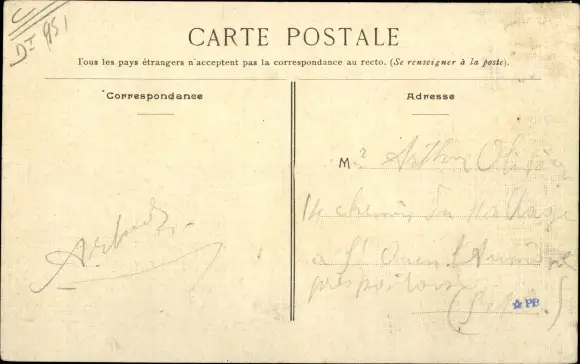 CARTE POSTALE
Tous les pays étrangers n'acceptent pas la correspondance au recto. (Se renseigner à la poste).
Correspondance
Adresse
Mr Arthur
14 chemin du halage
à St Ouen l'Aumône
près pontoise
PB